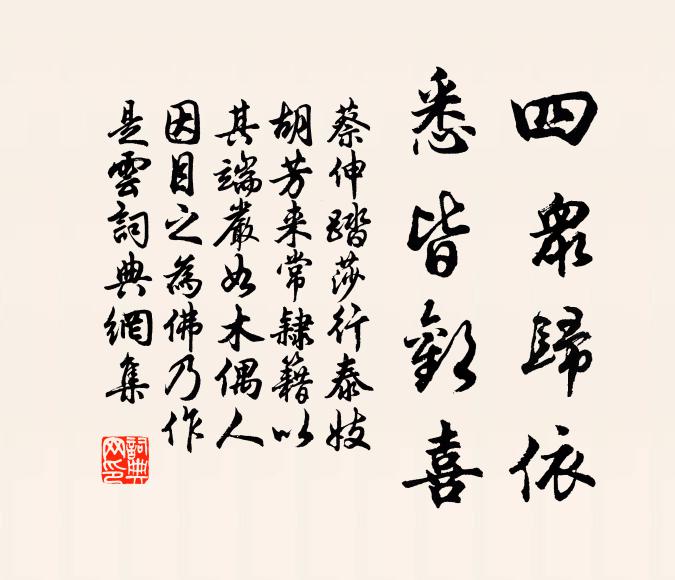 四衆歸依
悉皆歡喜
蔡伸踏莎行泰妓
胡芳来常隸籍以
其端嚴如木偶人
因目之為佛乃作
是雲詞典網集
詞典網印